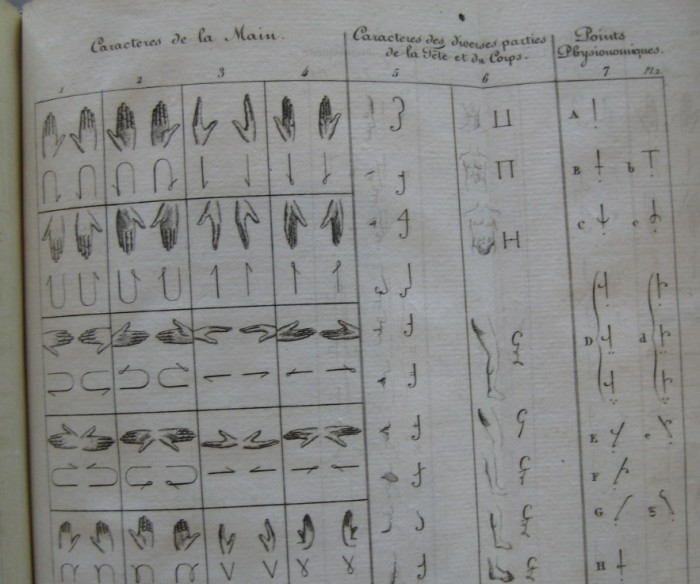 Caracteres de la Main.
Caracteres des diverses parties
de la Tête et du Corps.
Points
Physionomiques.
1 2 3 4 5 6 7
A
B b
C c
D d
E e
F
G g
H